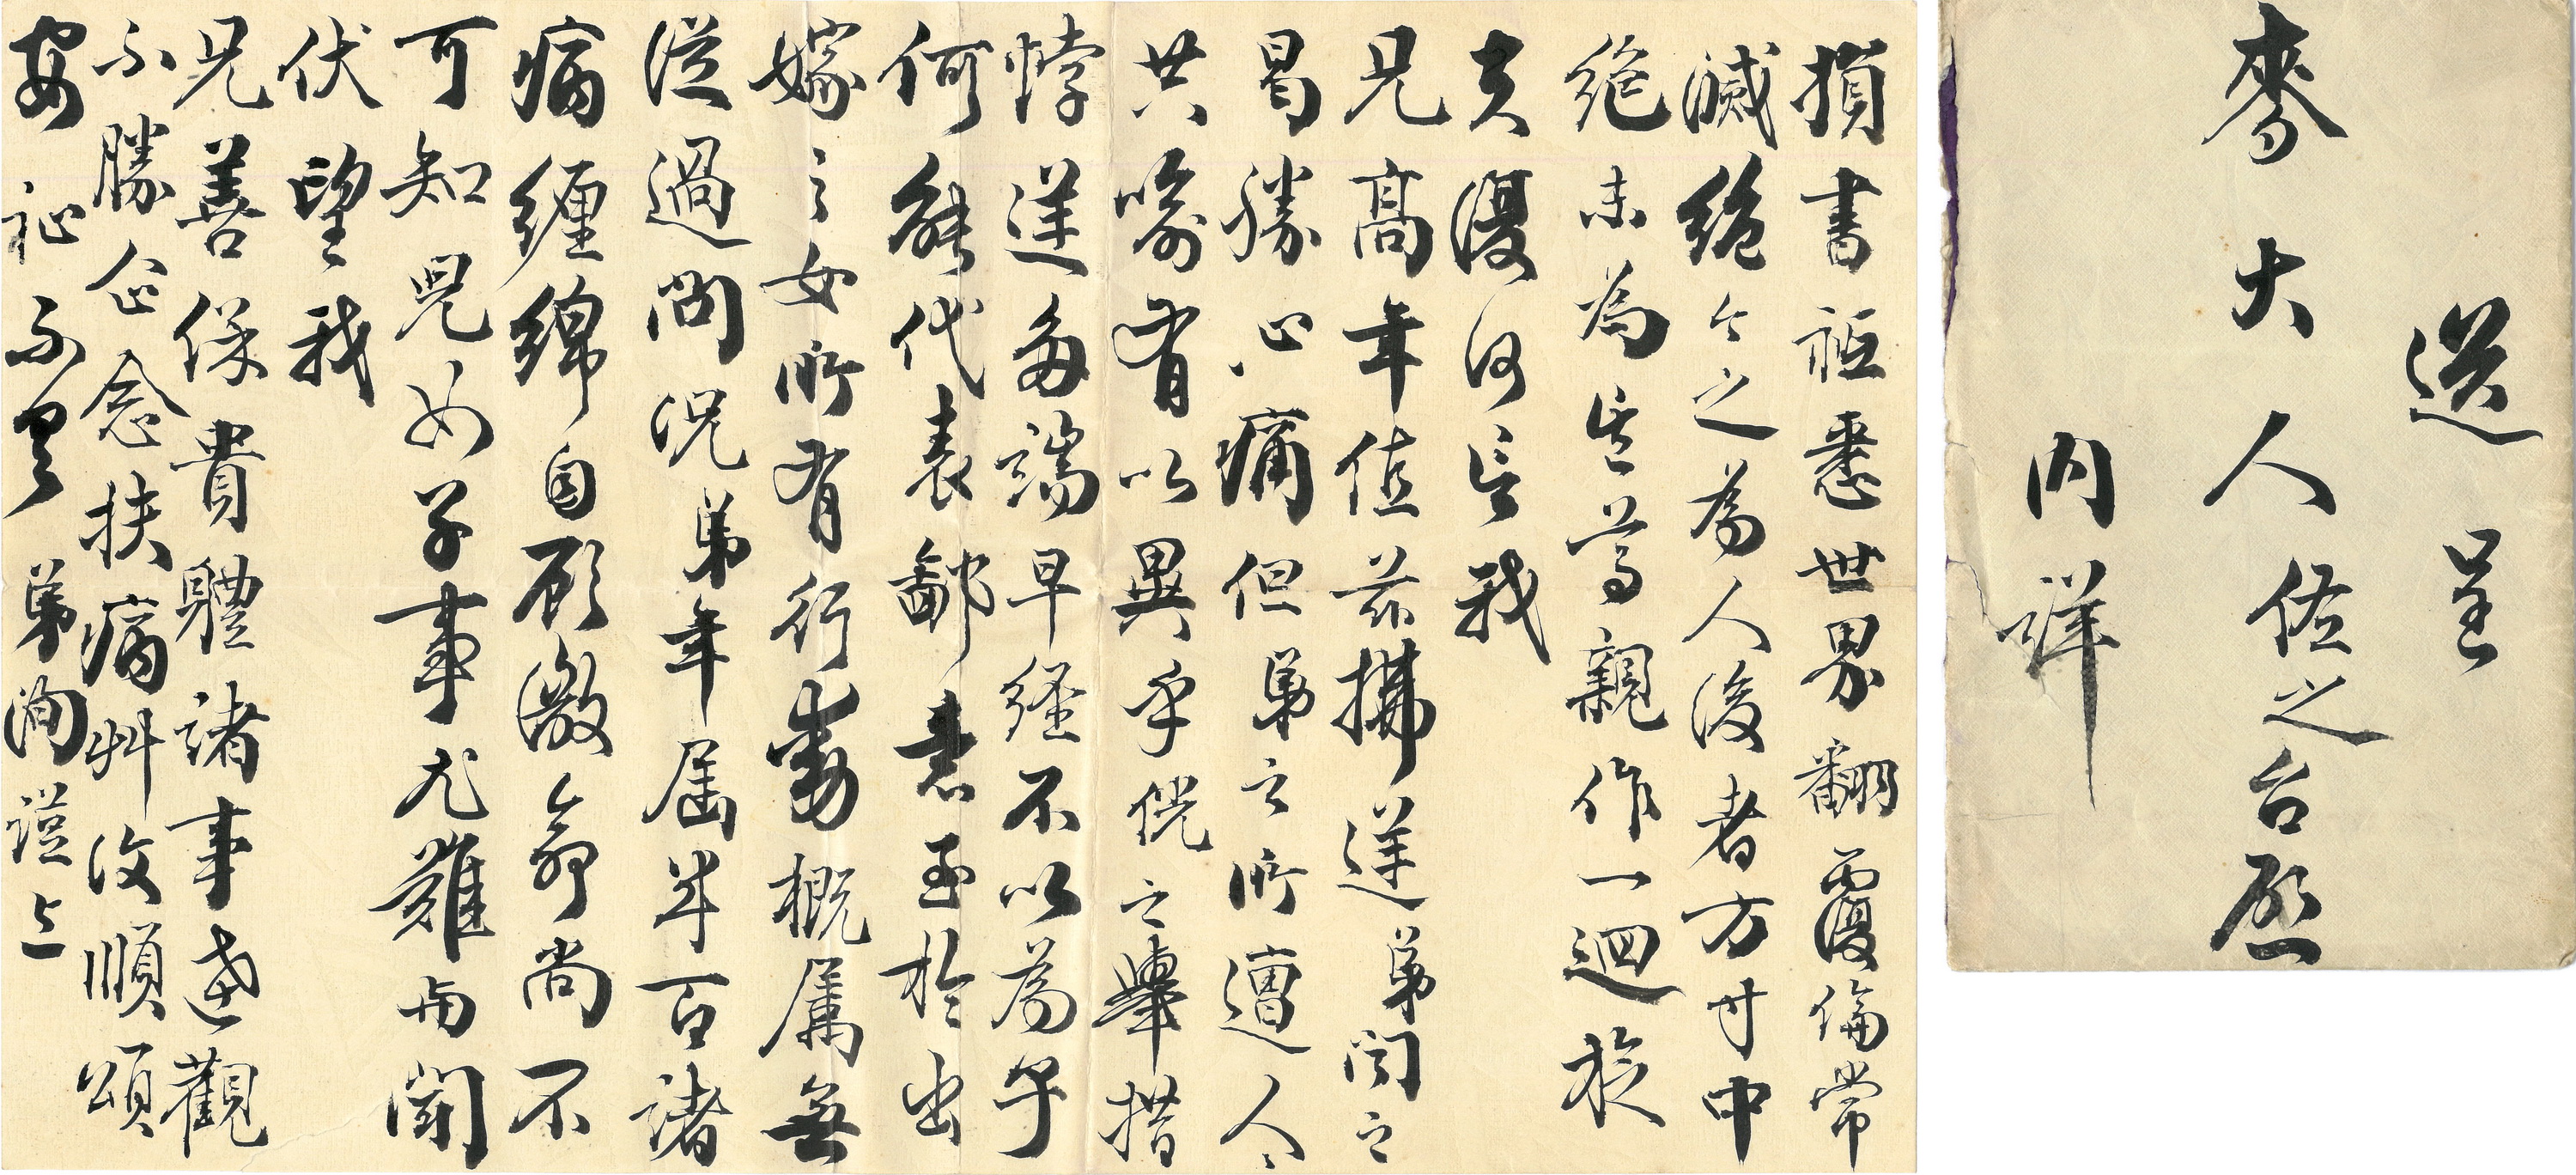 送呈
麥大人佐之台啟
內詳
損書祗悉世界翻覆倫常
滅絕今之為人後者方寸中
絕未為其尊親作一迴旋
夫復何言我
兄高年值茲拂逆弟聞之
曷勝心痛但弟之所遭人人
共喻有以異乎侊之舉措
悖逆多端早經不以為子
何能代表鄙意至於出
嫁之女所有行動概屬無
從過問況弟年屆半百諸
病纏綿自顧微命尚不
可知兒女子事尤難與聞
伏望我
兄善保貴體諸事達觀
不勝企念扶病艸復順頌
安祉不具 弟洵謹上